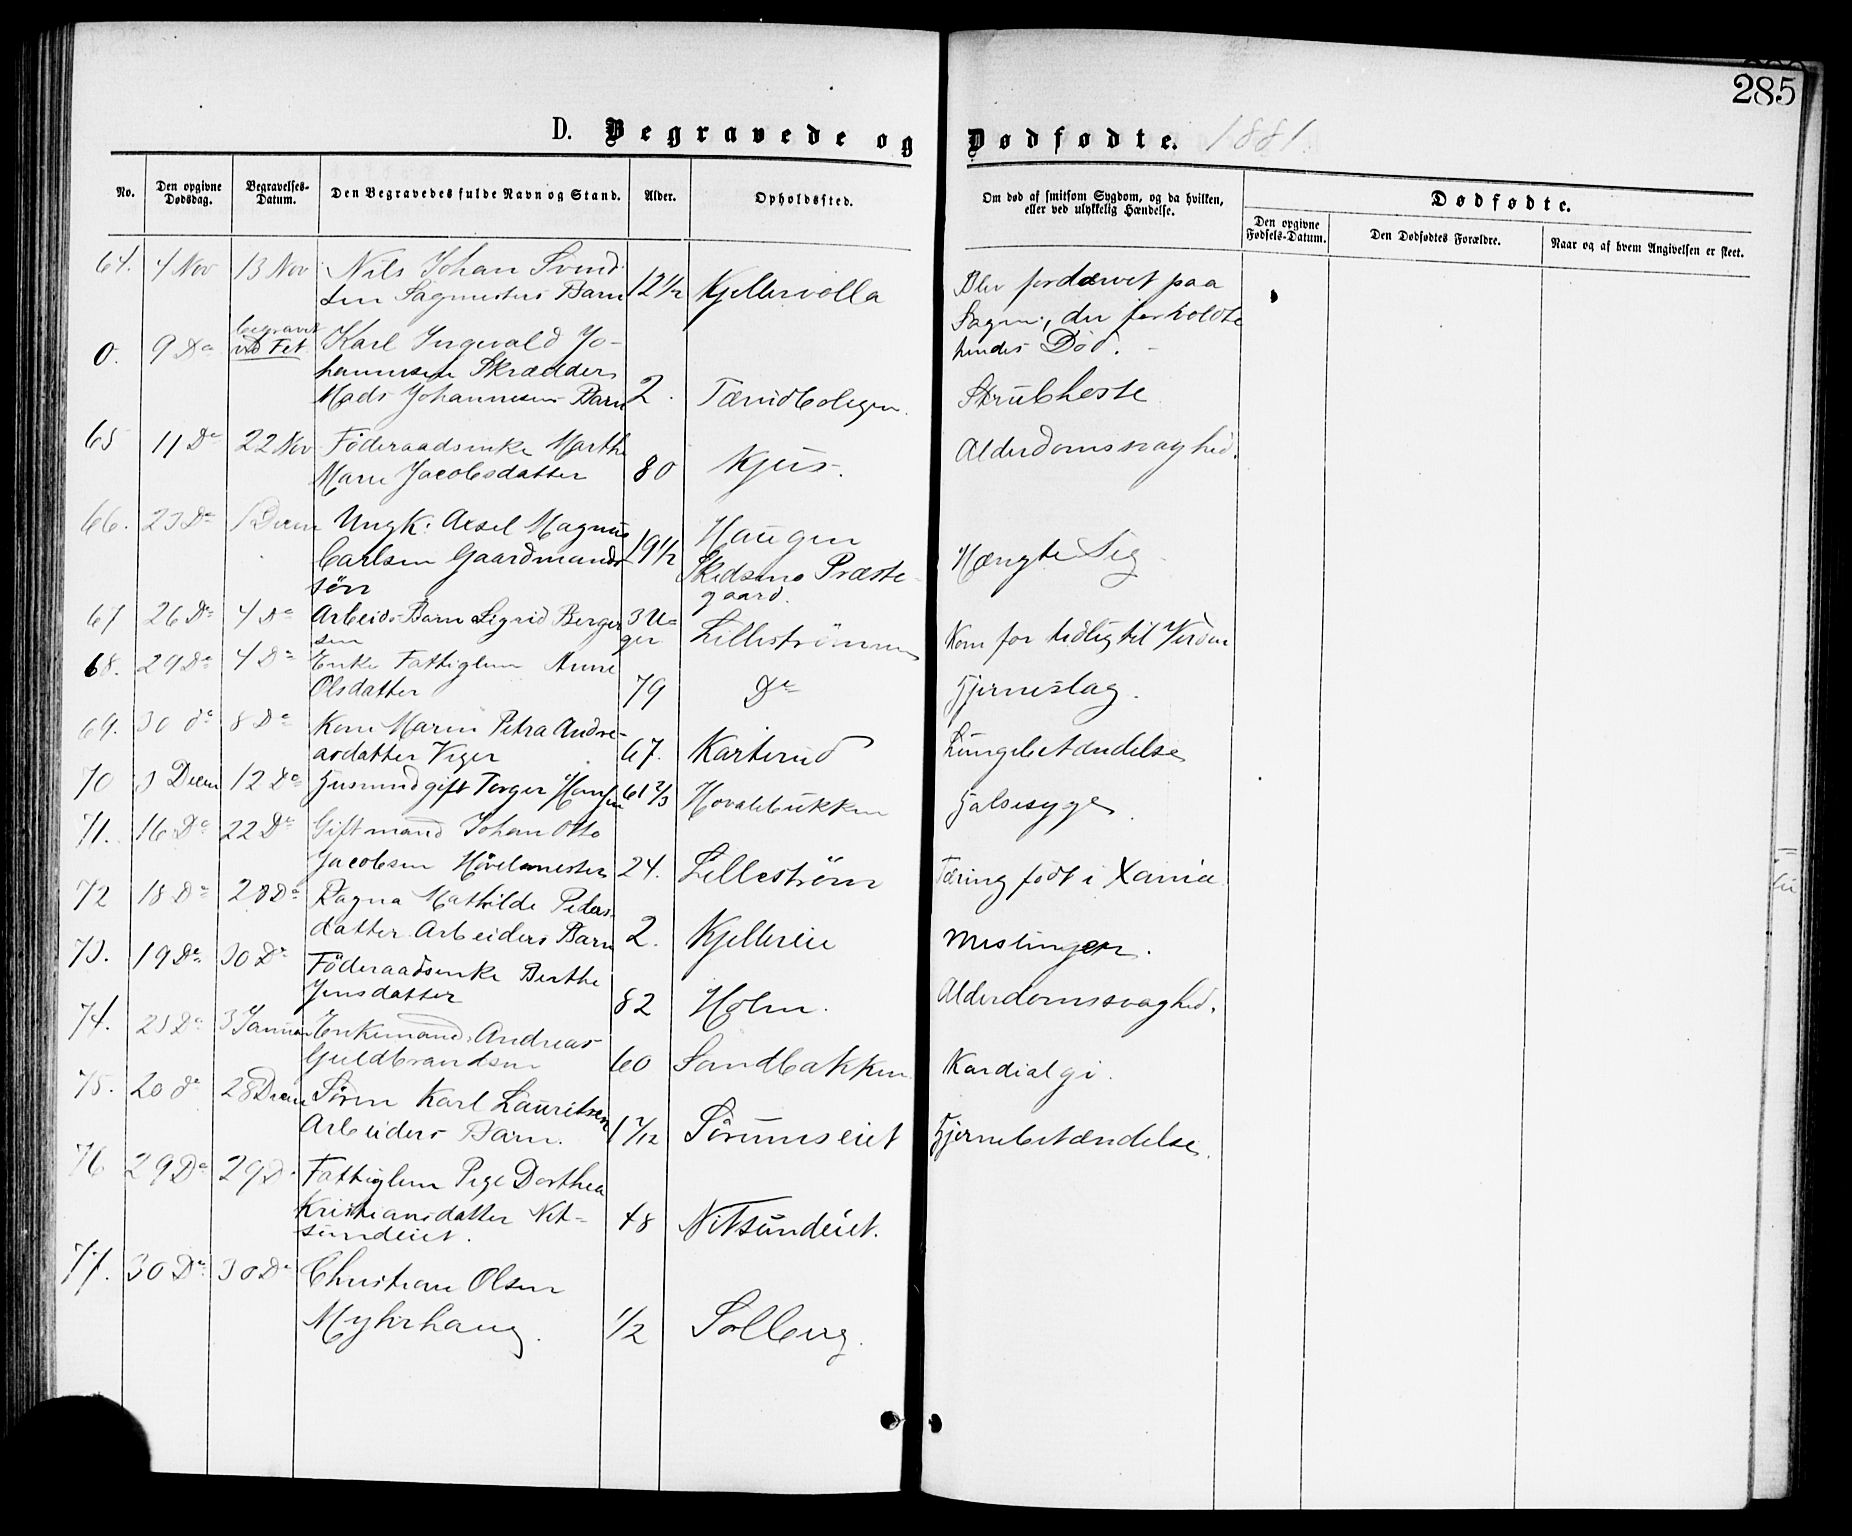 285
D. Begravede og Dødfødte. 1881.
No.
Den opgivne Dødsdag.
Begravelses-Datum.
Den Begravedes fulde Navn og Stand.
Alder.
Opholdssted.
Om død af smitsom Sygdom, og da hvilken, eller ved ulykkelig Hændelse.
Dødfødte.
Den opgivne Fødsels-Datum.
Den Dødfødtes Forældre.
Naar og af hvem Angivelsen er skeet.
64. 4 Nov 13 Nov Nils Johan Svend-
sen Sagmesters Barn 12 1/2 Kjellervolla Blev fordærvet paa
Sagen, der forholdte
hendes Død.
0. 9 Do begravet
ved Fet Karl Ingvald Jo-
hannesen Skrædder
Mads Johannesens Barn 2. Tærudboligen. Strubhoste
65 11 Do 22 Nov Føderaadsenke Marthe
Marie Jacobsdatter 80 Kjus. Alderdomssvaghed.
66. 23 Do 1 Decem Ungk. Axel Magnus
Carlsen Gaardmands
søn 19 1/2 Haugen
Skedsmo Præste-
gaard. Hængte Sig
67 26 Do 4 Do Arbeids-Barn Sigrid Berger
sen 3 U-
ger Lillestrømmen Kom for tidlig til Verden
68. 29 Do 4 Do Enke Fattiglem Anne
Olsdatter 79 Do Hjerneslag.
69. 30 do 8 Do Kone Maren Petra Andre-
asdatter Viger 67. Karterud Lungebetændelse
70 3 Decem 12 Do Husmand gift Torger Hansen 61 2/3 Hovalebukken Halssyge
71. 16 Do 22 Do Gift mand Johan Otto
Jacobsen Høvelmester 24. Lillestrøm Tæring født i Xania
72 18 Do 28 Do Ragna Mathilde Peders-
datter Arbeiders Barn 2. Kjellereie Meslinger.
73. 19 Do 30 Do Føderaadsenke Berthe
Jensdatter 82 Holm. Alderdomssvaghed.
74. 23 Do 3 Januar Enkemand Andreas
Guldbrandsen 60 Sandbakken Kardialgi.
75. 20 do 28 Decem Søren Karl Lauritsen
Arbeiders Barn. 1 7/12 Sørumseiet Hjernebetændelse.
76 29 Do 29 D. Fattiglem Pige Dorthea
Kristiansdatter Nit-
sundeiet. 48 Nitsundeiet.
77. 30 Do 30 Do Christian Olsen
Myhrhaug. 1/2 Solberg.